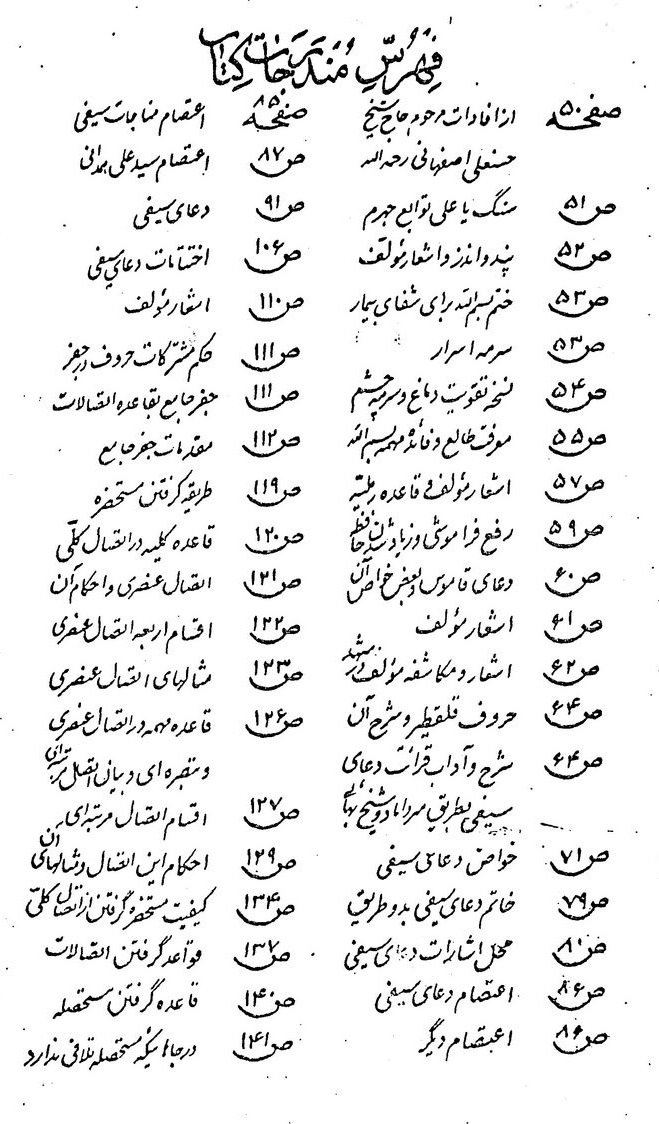 فهرس مندرجات کتاب
صفحه ۵۰ از افادات مرحوم حاج شیخ
حسنعلی اصفهانی رحمه الله
ص ۵۱ سنگ یا علی توابع جهرم
ص ۵۲ پند و اندرز و اشعار مؤلف
ص ۵۳ ختم بسم الله برای شفای بیمار
ص ۵۳ سرمه اسرار
ص ۵۴ نسخه تقویت دماغ و سرمه چشم
ص ۵۵ معرفت طالع و فائده مهمه بسم الله
ص ۵۷ اشعار مؤلف و قاعده
ص ۵۹ رفع فراموشی و زیاد شدن حافظه
ص ۶۰ دعای قاموس و بعض خواص آن
ص ۶۱ اشعار مؤلف
ص ۶۲ اشعار و مکاشفه مؤلف در مشهد
ص ۶۴ حروف قلقطیر و شرح آن
ص ۶۴ شرح و آداب قرائت دعای
سیفی بطریق میرداماد و شیخ بهائی
ص ۷۱ خواص دعای سیفی
ص ۷۹ خاتم دعای سیفی بدو طریق
ص ۸۰ محل اشارات دعای سیفی
ص ۸۶ اعتصام دعای سیفی
ص ۸۶ اعتصام دیگر
صفحه ۸۵ اعتصام مناجات سیفی
ص ۸۷ اعتصام سید علی همدانی
ص ۹۱ دعای سیفی
ص ۱۰۶ اختتامات دعای سیفی
ص ۱۱۰ اشعار مؤلف
ص ۱۱۱ حکم مشترکات حروف در جفر
ص ۱۱۱ جفر جامع بقاعده اتصالات
ص ۱۱۲ مقدمات جفر جامع
ص ۱۱۹ طریقه گرفتن مستحضره
ص ۱۲۰ قاعده کلیه در اتصال کلی
ص ۱۲۱ اتصال عنصری و احکام آن
ص ۱۲۲ اقسام اربعه اتصال عنصری
ص ۱۲۳ مثالهای اتصال عنصری
ص ۱۲۶ قاعده مهمه در اتصال عنصری
و تبصره ای در بیان اتصال مرتبه ای
ص ۱۲۷ اقسام اتصال مرتبه ای
ص ۱۲۹ احکام این اتصال و مثالهای آن
ص ۱۳۴ کیفیت مستحضره گرفتن از اتصال کلی
ص ۱۳۷ قواعد گرفتن اتصالات
ص ۱۴۰ قاعده گرفتن مستحصله
ص ۱۴۱ در جائیکه مستحصله تلاقی ندارد